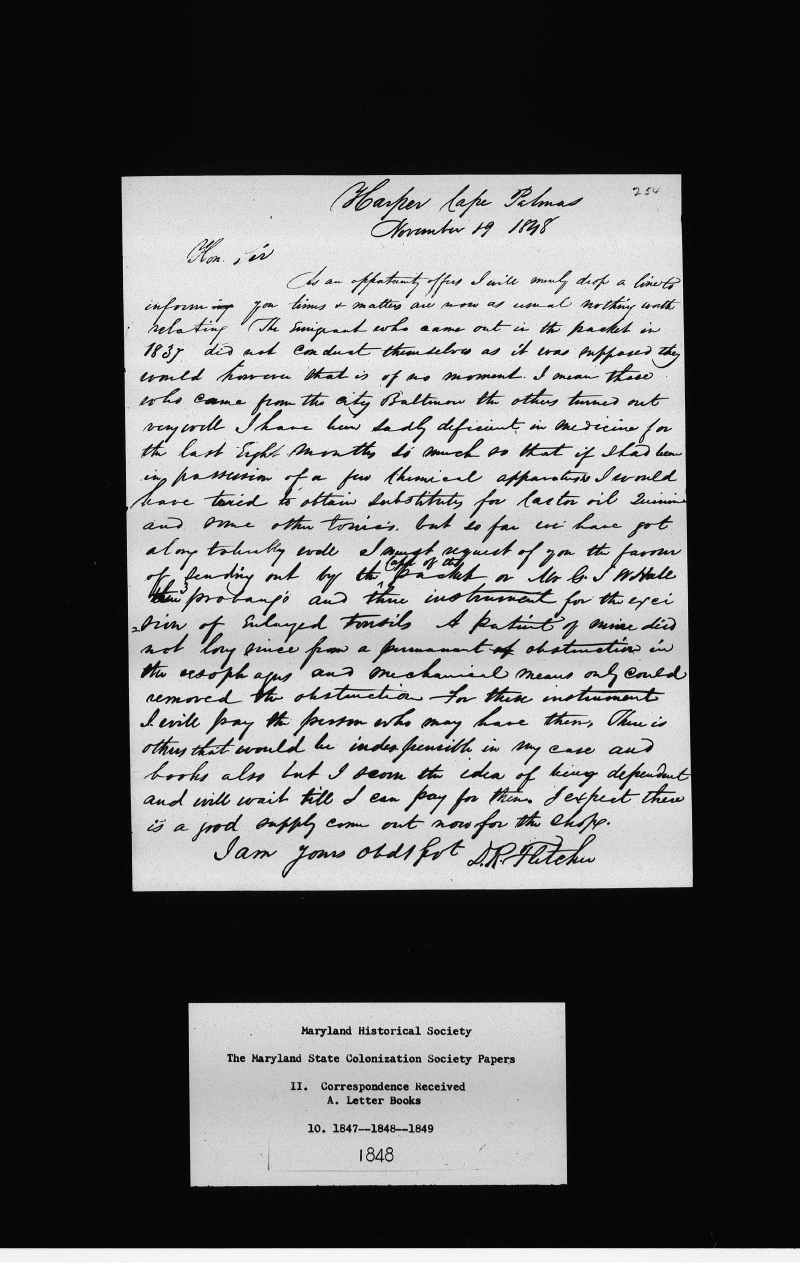 254
Harper Cape Palmas
November 19 1848
Hon. Sir
As an oppatunity offers I will merly drop a line to
inform ing you times & matters are now as usual nothing worth
relating The Emigrant who came out in the packet in
1837 did not conduct themselves as it was supposed they
would however that is of no moment. I mean those
who came from the city Baltimore the others turned out
very well I have been sadly deficient in medicine for
the last Eight months so much so that if I had been
in possession of a few Chemical apparatus I would
have tried to obtain substitutes for Castor oil Quinine
and some other tonics. but so far we have got
along well I must request of you the favour
Capt of the
of sending out by the packet or Mr G I W Hall
3 probang's and three instrument for the exci
sion of Enlarged tonsils A patient of mine died
not long since from a permanant of obstruction in
the oesophagus and mechanical means only could
removed the obstruction For these instruments
I will pay the person who may have them, There is
others that would be indespensible in my case and
books also but I scorn the idea of being dependent
and will wait till I can pay for them. I expect there
is a good supply come out now for the shop.
I am yours obdt Svt D. R. Fletcher
Maryland Historical Society
The Maryland State Colonization Society Papers
II. Correspondence Received
A. Letter Books
10. 1847--1848--1849
1848